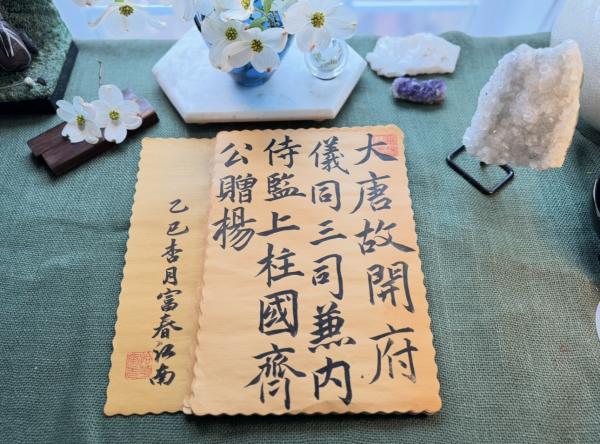 大唐故開府
儀同三司兼內
侍監上柱國齊
公贈楊
乙巳杏月富春江南